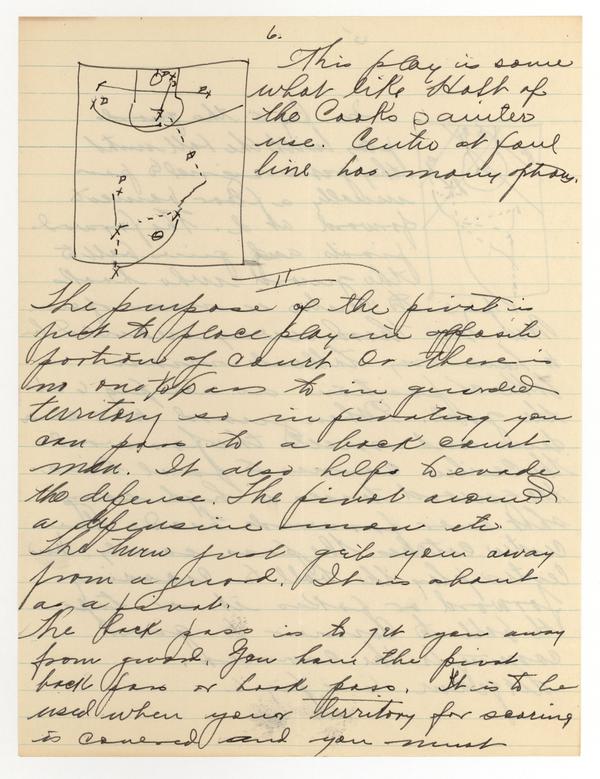 6.
This play is some
what like Holt of
the Cooks Painter
use. Center at foul
line has many options.
II
The purpose of the pivot is
just to place play in opposite
portion of court. Or there is
no one to pass to in guarded
territory so in pivoting you
can pass to a back court
man. It also helps to evade
the defense. The pivot around
a defensive man etc.
The turn just gets you away
from a guard. It is about
as a pivot.
The back pass is to get you away
from guard. You have the pivot
back pass or hook pass. It is to be
used when your territory for scoring
is covered and you must